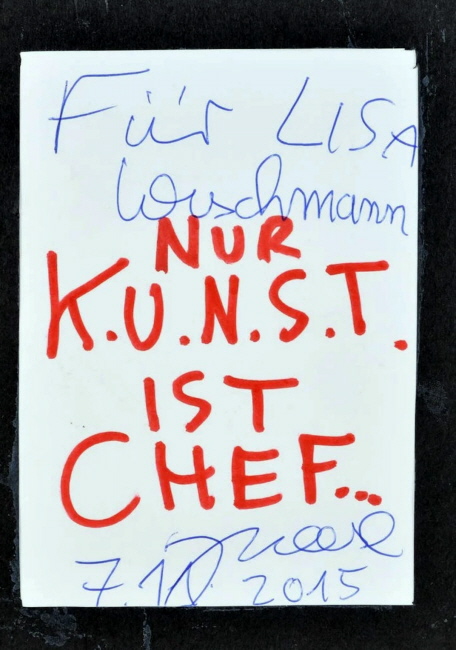 Für LISA
Wuschmann
NUR
K.U.N.S.T.
IST
CHEF...
2015